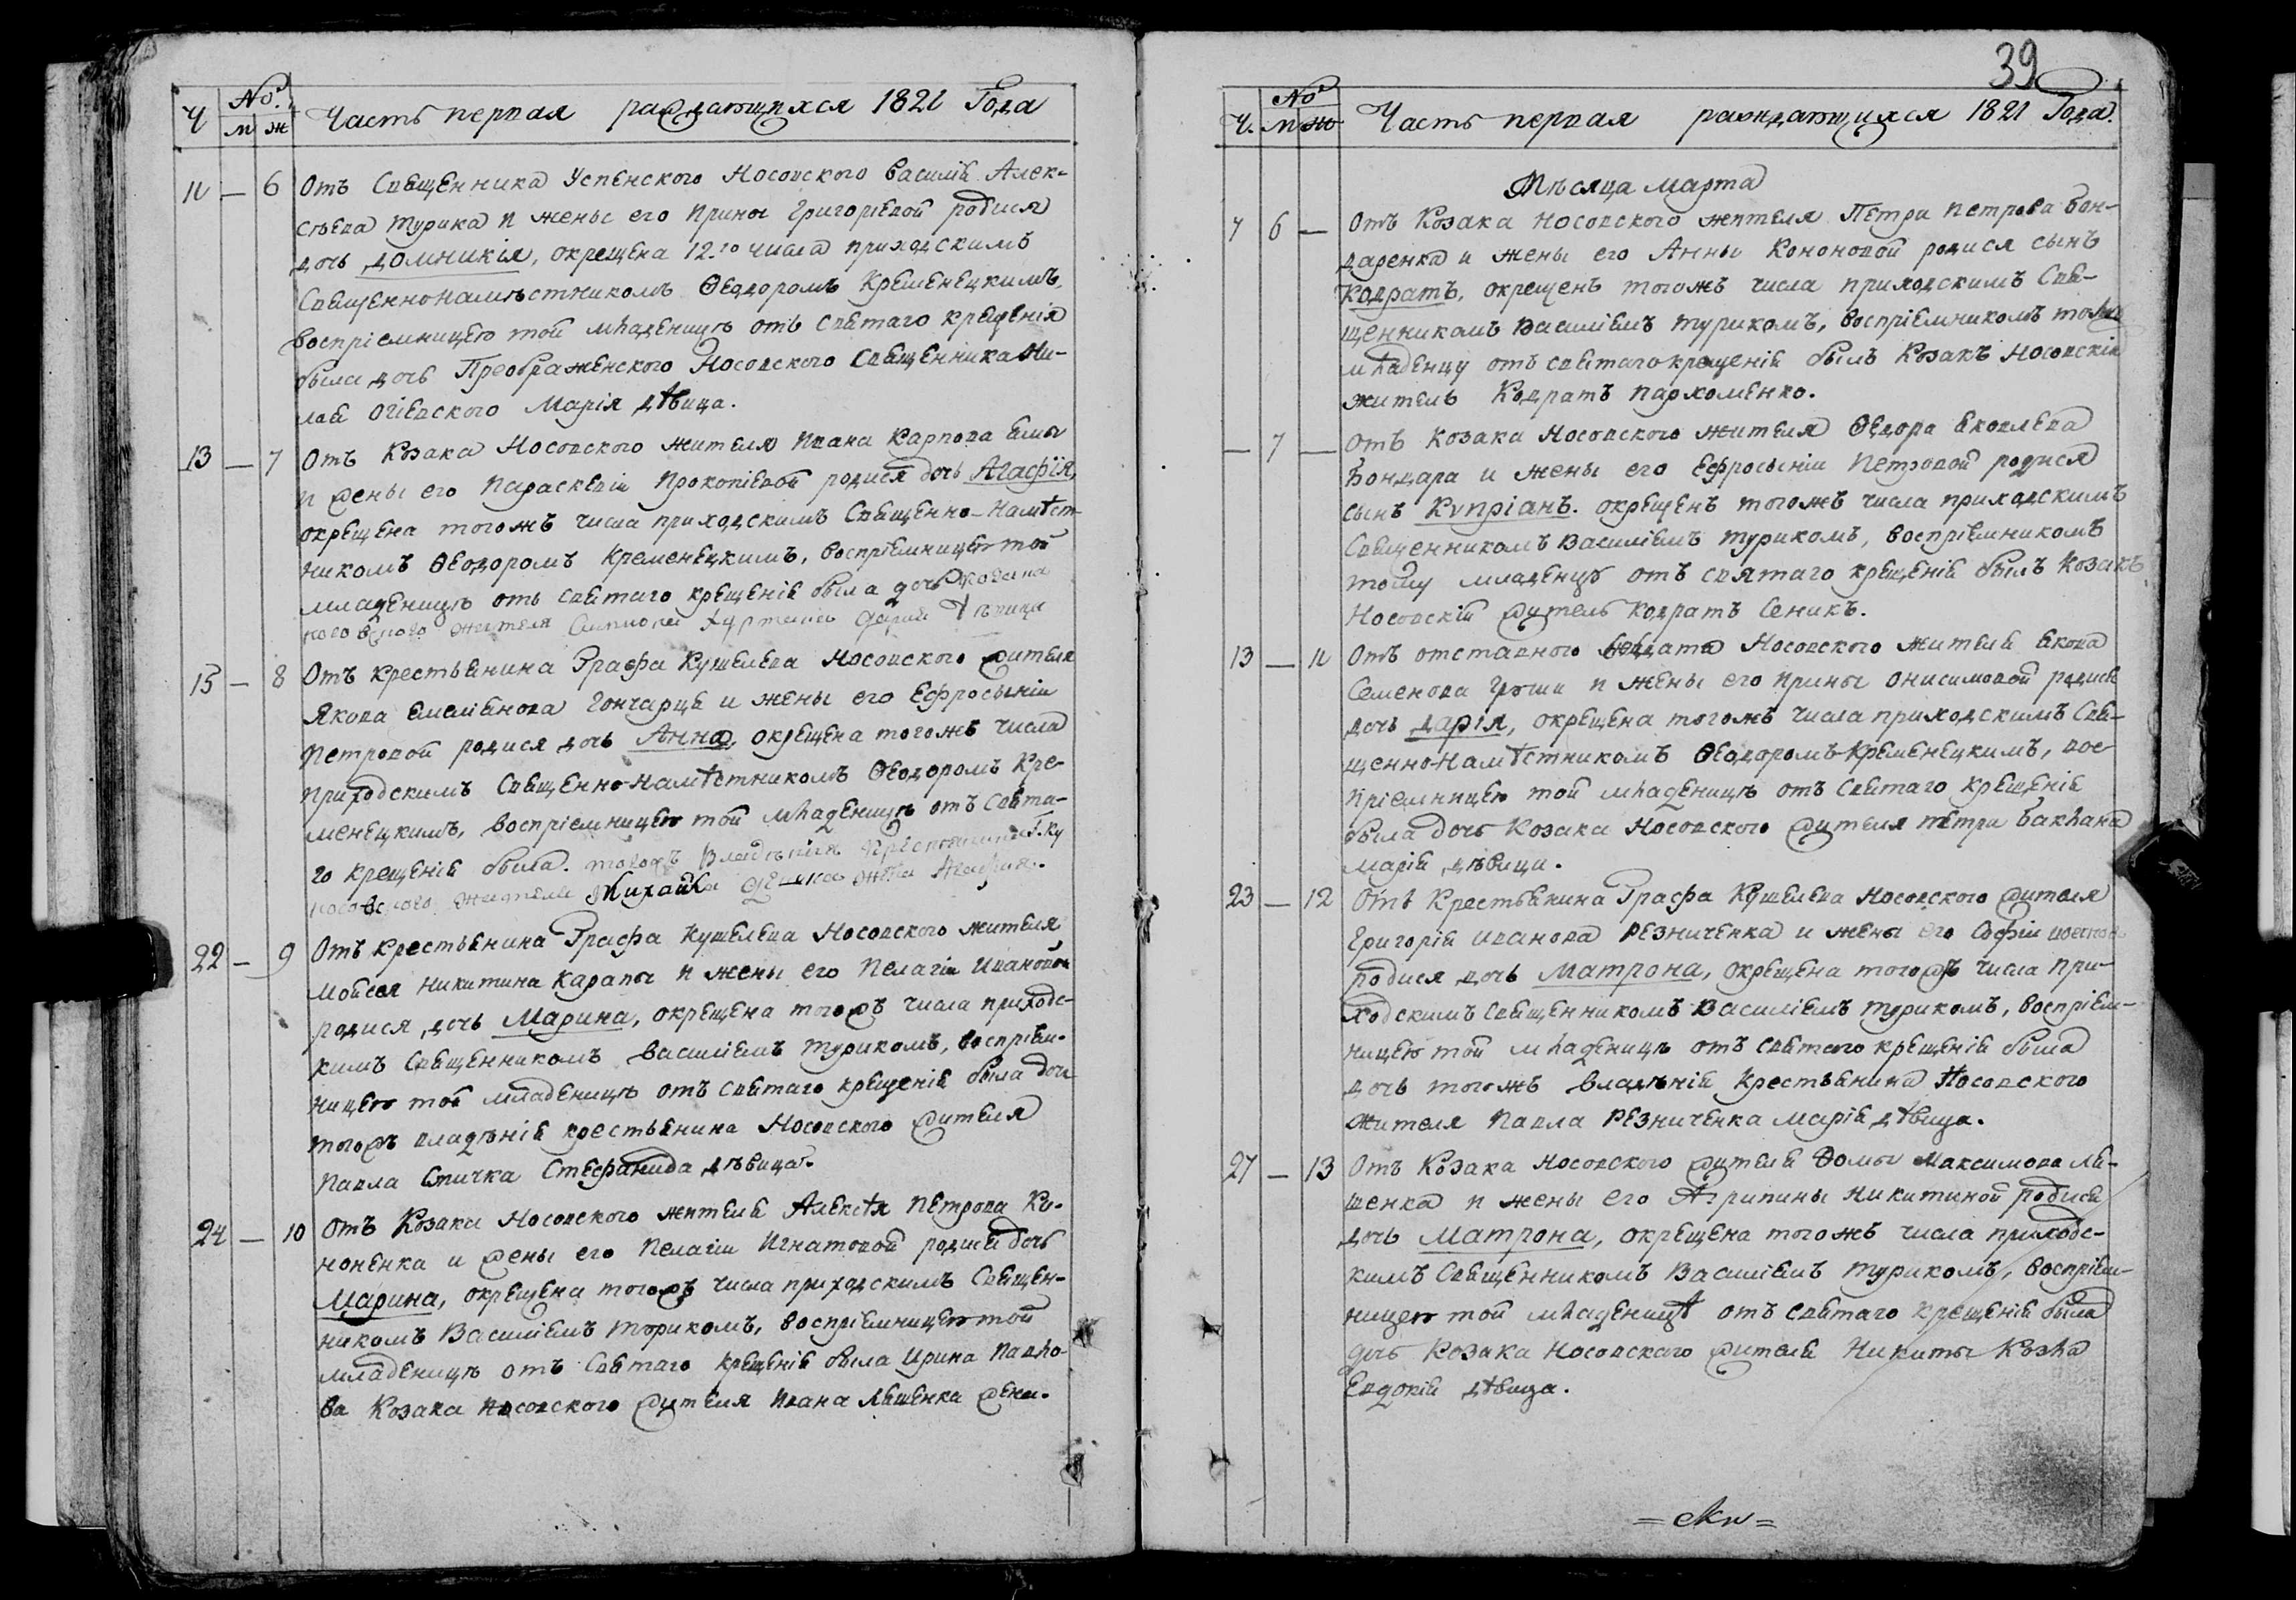 Ч № м ж Часть первая раждающихся 1821 Года
11 — 6 Отъ Священника Успенского Носовского Василія Алек-
сѣева Турика и жены его Ирины Григоріевой родися
дочь Домникія, окрещена 12.го числа приходскимъ
Священнонамѣстникомъ Ѳеодоромъ Кременецкимъ,
воспріемницею той младеницѣ отъ святаго крещенія
была дочь Преображенского Носовского Священника Ни-
лая Огіевского Марія дѣвица.
13 — 7 Отъ Козака Носовского жителя Ивана Карпова
и жены его Параскевіи Прокопіевой родися дочь Агафія,
окрещена тогожъ числа приходскимъ Священно-Намѣст-
никомъ Ѳеодоромъ Кременецкимъ, воспріемницею той
младеницѣ отъ святаго крещенія была дочь козака
носовского жителя дѣвица
15 — 8 Отъ крестьянина Графа Кушелева Носовского жителя
Якова Емеліянова Гончарця и жены его Ефросыніи
Петровой родися дочь Анна, окрещена тогожъ числа
приходскимъ Священно-намѣстникомъ Ѳеодоромъ Кре-
менецкимъ, воспріемницею той младеницѣ отъ свята-
го крещенія была. тогожъ владѣнія крестьянина Г. Ку
носовского жителя Михайла жена Агафия.
22 — 9 Отъ крестьянина Графа Кушелева Носовского жителя
Мойсея Никитина Карапы и жены его Пелагіи Ивановой
родися дочь Марина, окрещена тогожъ числа приходс-
кимъ Священникомъ Василіемъ Туриком, воспріем-
ницею той младеницѣ отъ святаго крещенія была дочь
тогожъ владѣнія крестьянина Носовского жителя
Павла Спичка Стефанида дѣвица.
24 — 10 Отъ Козака Носовского жителя Алексѣя Петрова Ко-
ноненка и жены его Пелагіи Игнатовой родися дочь
Марина, окрещена тогожъ числа приходскимъ Священ-
никомъ Василіемъ Турикомъ, воспріемницею той
младеницѣ отъ святаго крещенія была Ирина Павло-
ва Козака Носовского жителя Ивана Ляшенка жена.
39
Ч. № м ж Часть первая раждающихся 1821 Года.
Мѣсяца Марта
7 6 — Отъ Козака Носовского жителя Петра Петрова Бон-
даренка и жены его Анны Кононовой родися сынъ
Кодратъ, окрещенъ тогожъ числа приходскимъ Свя-
щенникомъ Василіемъ Турикомъ, воспріемникомъ тому
младенцу отъ святаго крещенія былъ Козакъ Носовскій
житель Кодратъ Пархоменко.
— 7 — Отъ Козака Носовского жителя Ѳедора Яковлева
Бондара и жены его Ефросыніи Петровой родися
сынъ Кυпріанъ. окрещенъ тогожъ числа приходскимъ
Священникомъ Василіемъ Турикомъ, воспріемникомъ
тому младенцу отъ святаго крещенія былъ Козакъ
Носовскій житель Кодратъ Сеникъ.
13 — 11 Отъ отставного солдата Носовского жителя Якова
Семенова Груши и жены его Ирины Онисимовой родися
дочь Дарія, окрещена тогожъ числа приходскимъ Свя-
щенно-Намѣстникомъ Ѳеодоромъ Кременецкимъ, вос-
пріемницею той младеницѣ отъ святаго крещенія
была дочь Козака Носовского жителя Петра Баклана
Марія дѣвица.
23 — 12 Отъ Крестьянина Графа Кушелева Носовского жителя
Григорія Иванова Резниченка и жены его Софіи
родися дочь Матрона, окрещена тогожъ числа при-
ходскимъ Священникомъ Василіемъ Турикомъ, воспріем-
ницею той младеницѣ отъ святаго крещенія была
дочь тогожъ владѣнія крестьянина Носовского
жителя Павла Резниченка Марія дѣвица.
27 — 13 Отъ Козака Носовского жителя Ѳомы Максимова Ля-
шенка и жены его Агрипины Никитиной родися
дочь Матрона, окрещена тогожъ числа приходс-
кимъ Священникомъ Василіемъ Турикомъ, воспріем-
ницею той младеницѣ отъ святаго крещенія была
дочь Козака Носовского жителя Никиты Козла
Евдокія дѣвица.